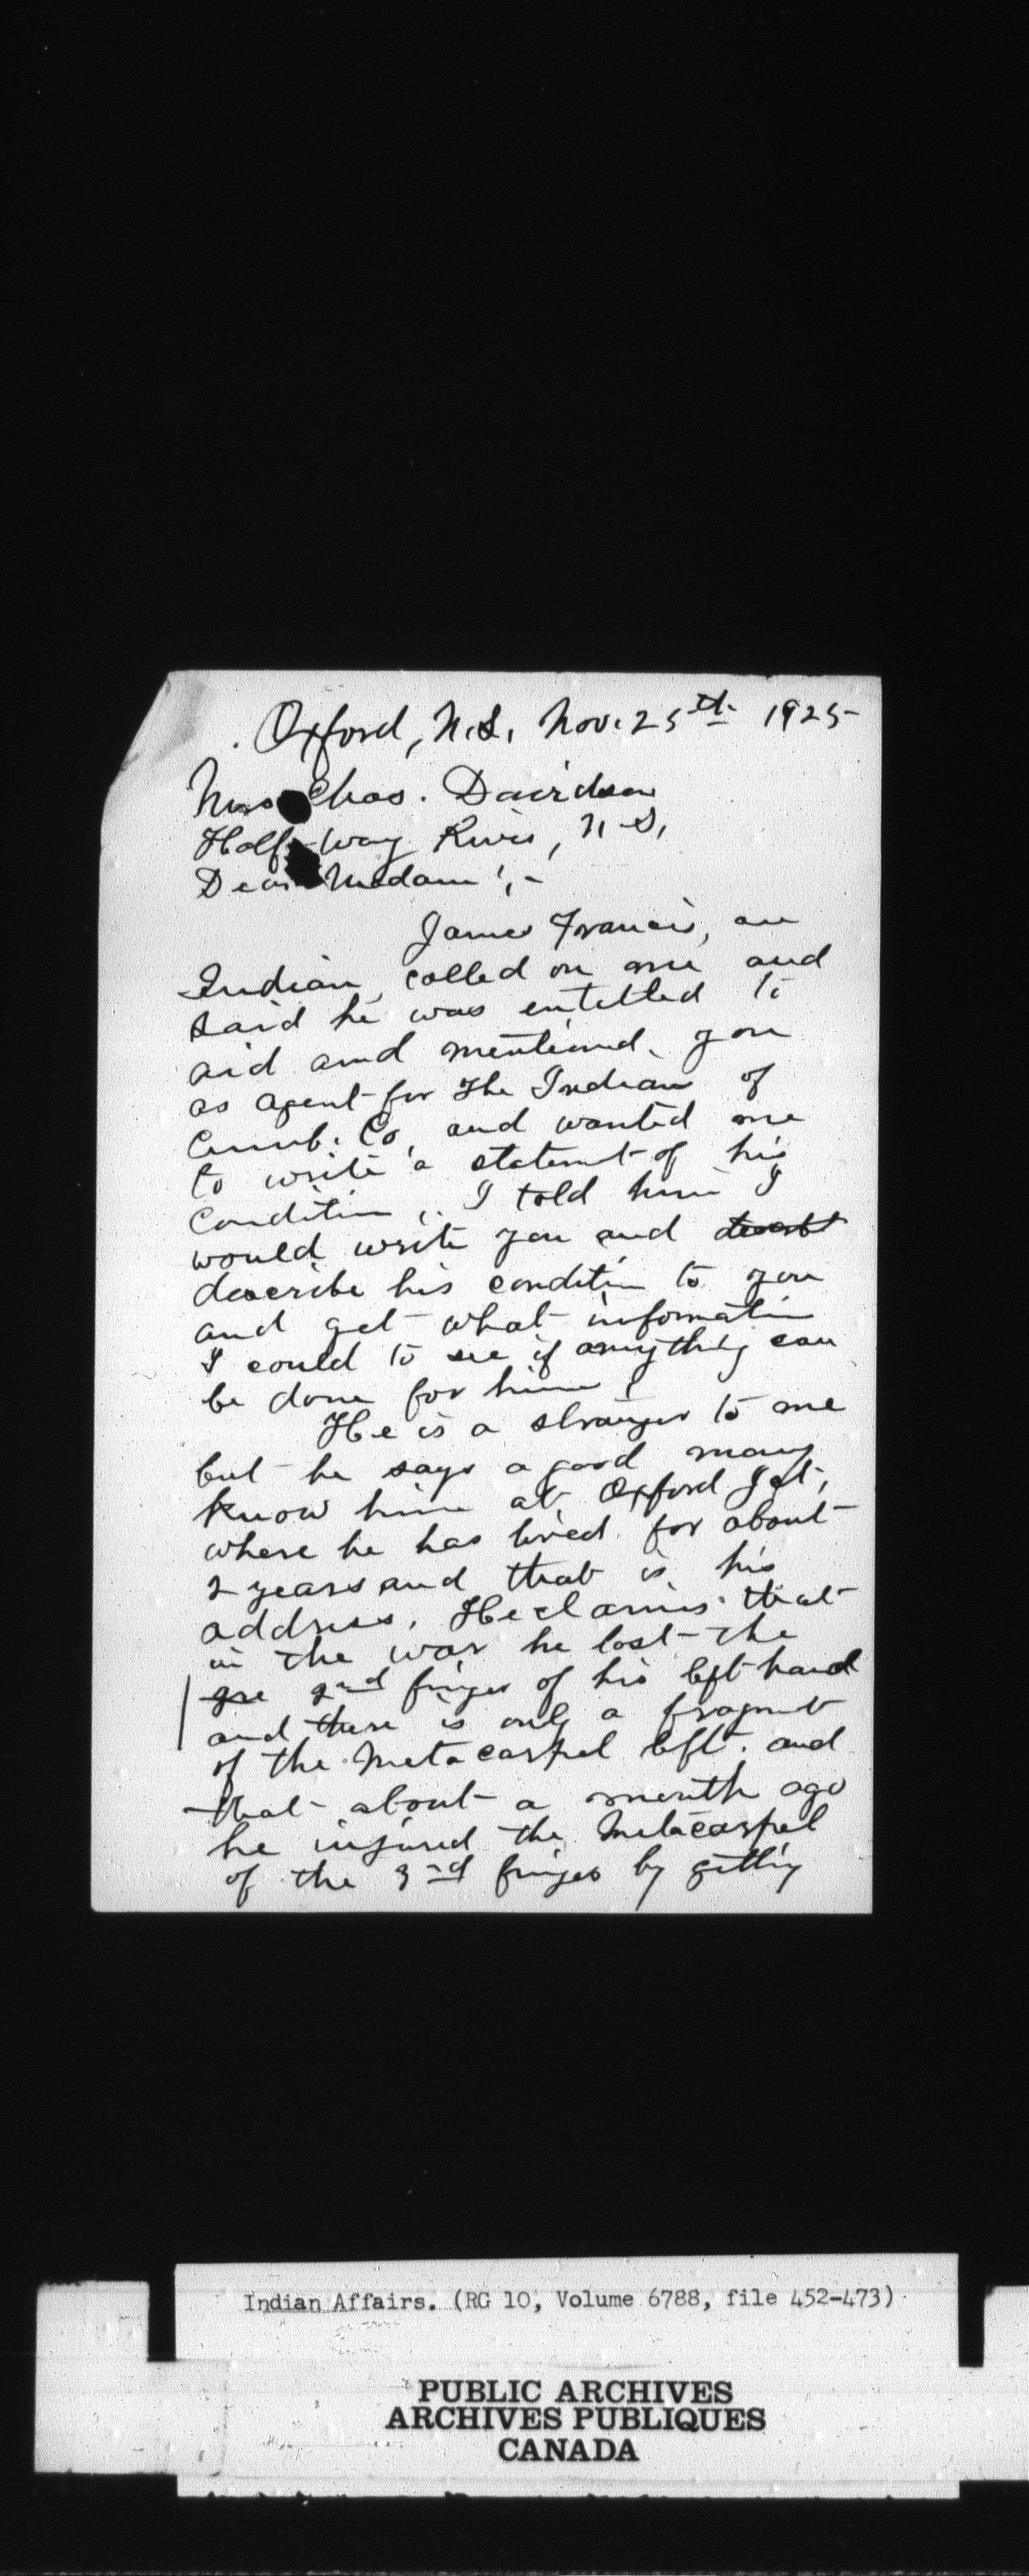 Oxford, N.S, Nov. 25th 1925
Mrs Chas. Davidson
Half-Way River, N-S,
Dear Madam,-
James Francis, an
Indian, called on me and
said he was entitled to
aid and mentioned you
as agent for the Indian of
Cumb. Co, and wanted me
to write a statemt of his
condition. I told him I
would write you and
describe his condition to you
and get what information
I could to see if anything can
be done for him.
He is a stranger to me
but he says a good many
know him at Oxford Jct,
where he has lived for about
2 years and that is his
address. He claims that
in the war he lost the
2nd finger of his left hand
and there is only a fragmt
of the Metacarpel left. and
that about a month ago
he injured the Metacarpel
of the 3rd finger by getting
Indian Affairs. (RG 10, Volume 6788, file 452-473)
PUBLIC ARCHIVES
ARCHIVES PUBLIQUES
CANADA